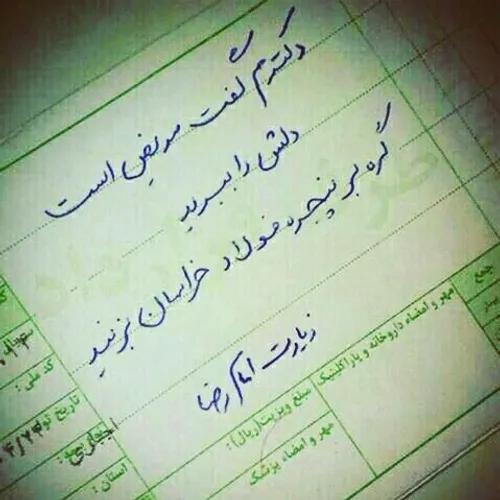 دکترم گفت مریض است
دلش را ببرید
گره بر پنجره فولاد خراسان بزنید
زیارت امام رضا
جمع
مهر و امضاء داروخانه و پاراکلینیک
مبلغ ویزیت(ریال):
مهر و امضاء پزشک
کد ملی:
تاریخ
استان: